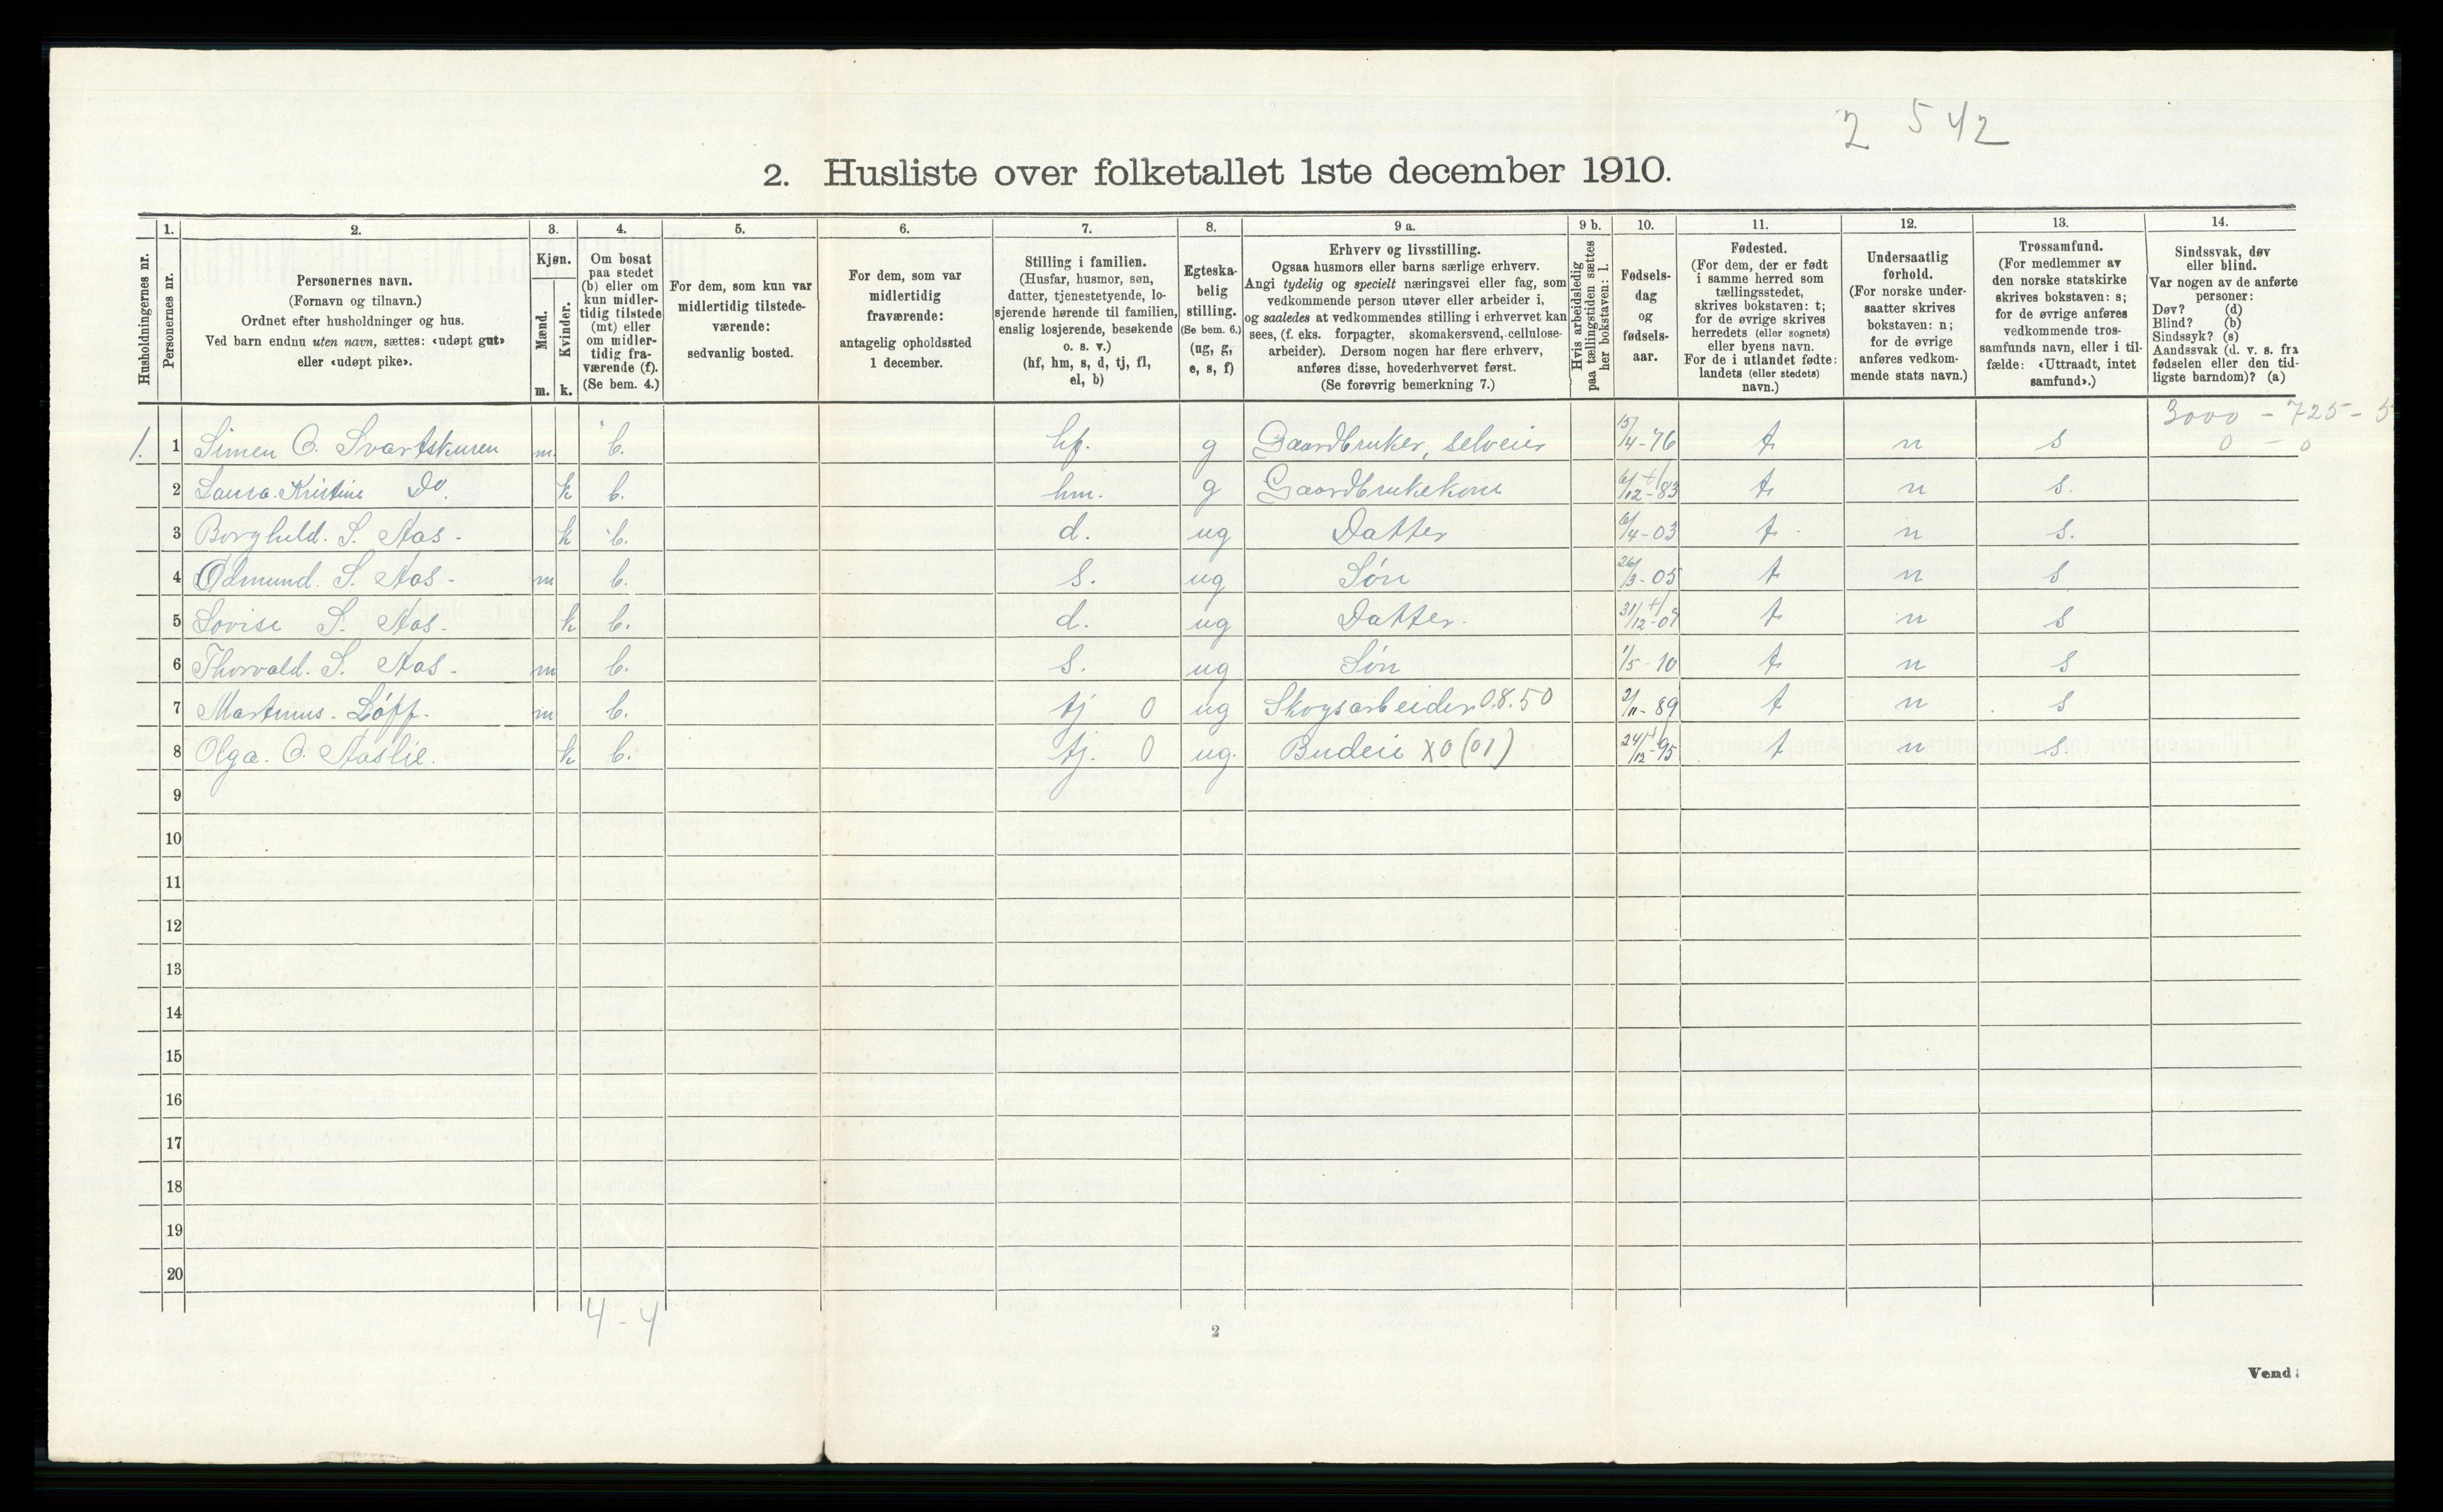 2 542
2. Husliste over folketallet 1ste december 1910.
Husholdningernes nr.
1.
Personernes nr.
2.
Personernes navn.
(Fornavn og tilnavn.)
Ordnet efter husholdninger og hus.
Ved barn endnu uten navn, sættes: «udøpt gut»
eller «udøpt pike».
3.
Kjøn.
Mænd.
Kvinder.
m. k.
4.
Om bosat
paa stedet
(b) eller om
kun midler-
tidig tilstede
(mt) eller
om midler-
tidig fra-
værende (f).
(Se bem. 4.)
5.
For dem, som kun var
midlertidig tilstede-
værende:
sedvanlig bosted.
6.
For dem, som var
midlertidig
fraværende:
antagelig opholdssted
1 december.
7.
Stilling i familien.
(Husfar, husmor, søn,
datter, tjenestetyende, lo-
sjerende hørende til familien,
enslig losjerende, besøkende
o. s. v.)
(hf, hm, s, d, tj, fl,
el, b)
8.
Egteska-
belig
stilling.
(Se bem. 6.)
(ug, g,
e, s, f)
9 a.
Erhverv og livsstilling.
Ogsaa husmors eller barns særlige erhverv.
Angi tydelig og specielt næringsvei eller fag, som
vedkommende person utøver eller arbeider i,
og saaledes at vedkommendes stilling i erhvervet kan
sees, (f. eks. forpagter, skomakersvend, cellulose-
arbeider). Dersom nogen har flere erhverv,
anføres disse, hovederhvervet først.
(Se forøvrig bemerkning 7.)
9 b.
Hvis arbeidsledig
paa tællingstiden sættes
her bokstaven: l.
10.
Fødsels-
dag
og
fødsels-
aar.
11.
Fødested.
(For dem, der er født
i samme herred som
tællingsstedet,
skrives bokstaven: t;
for de øvrige skrives
herredets (eller sognets)
eller byens navn.
For de i utlandet fødte:
landets (eller stedets)
navn.)
12.
Undersaatlig
forhold.
(For norske under-
saatter skrives
bokstaven: n;
for de øvrige
anføres vedkom-
mende stats navn.)
13.
Trossamfund.
(For medlemmer av
den norske statskirke
skrives bokstaven: s;
for de øvrige anføres
vedkommende tros-
samfunds navn, eller i til-
fælde: «Uttraadt, intet
samfund».)
14.
Sindssvak, døv
eller blind.
Var nogen av de anførte
personer:
Døv? (d)
Blind? (b)
Sindssyk? (s)
Aandssvak (d. v. s. fra
fødselen eller den tid-
ligste barndom)? (a)
3000 - 725 - 5
0 - 0
1. 1 Simen O. Svartskuren m b. hf. g Gaardbruker, selveier 15/4-76 t n s
2 Laura Kristine Do. k b. hm. g Gaardbrukekone 6/12-83 t n s.
3 Borghild. S. Aas - k b. d. ug Datter 6/4-03 t n s.
4 Odmund. S. Aas - m b. s. ug Søn 26/3-05 t n s
5 Lovise S. Aas - k b. d. ug Datter 31/12-07 t n s
6 Thorvald. S. Aas - m b. s. ug Søn 1/5-10 t n s
7 Martinus. Løff. m b. tj 0 ug Skogsarbeider 0.8.50 2/11-89 t n s
8 Olga. O. Aaslie. k b. tj. 0 ug. Budeie X0 (01) 24/12-95 t n s.
9
10
11
12
13
14
15
16
17
18
19
20
4 - 4
2
Vend!